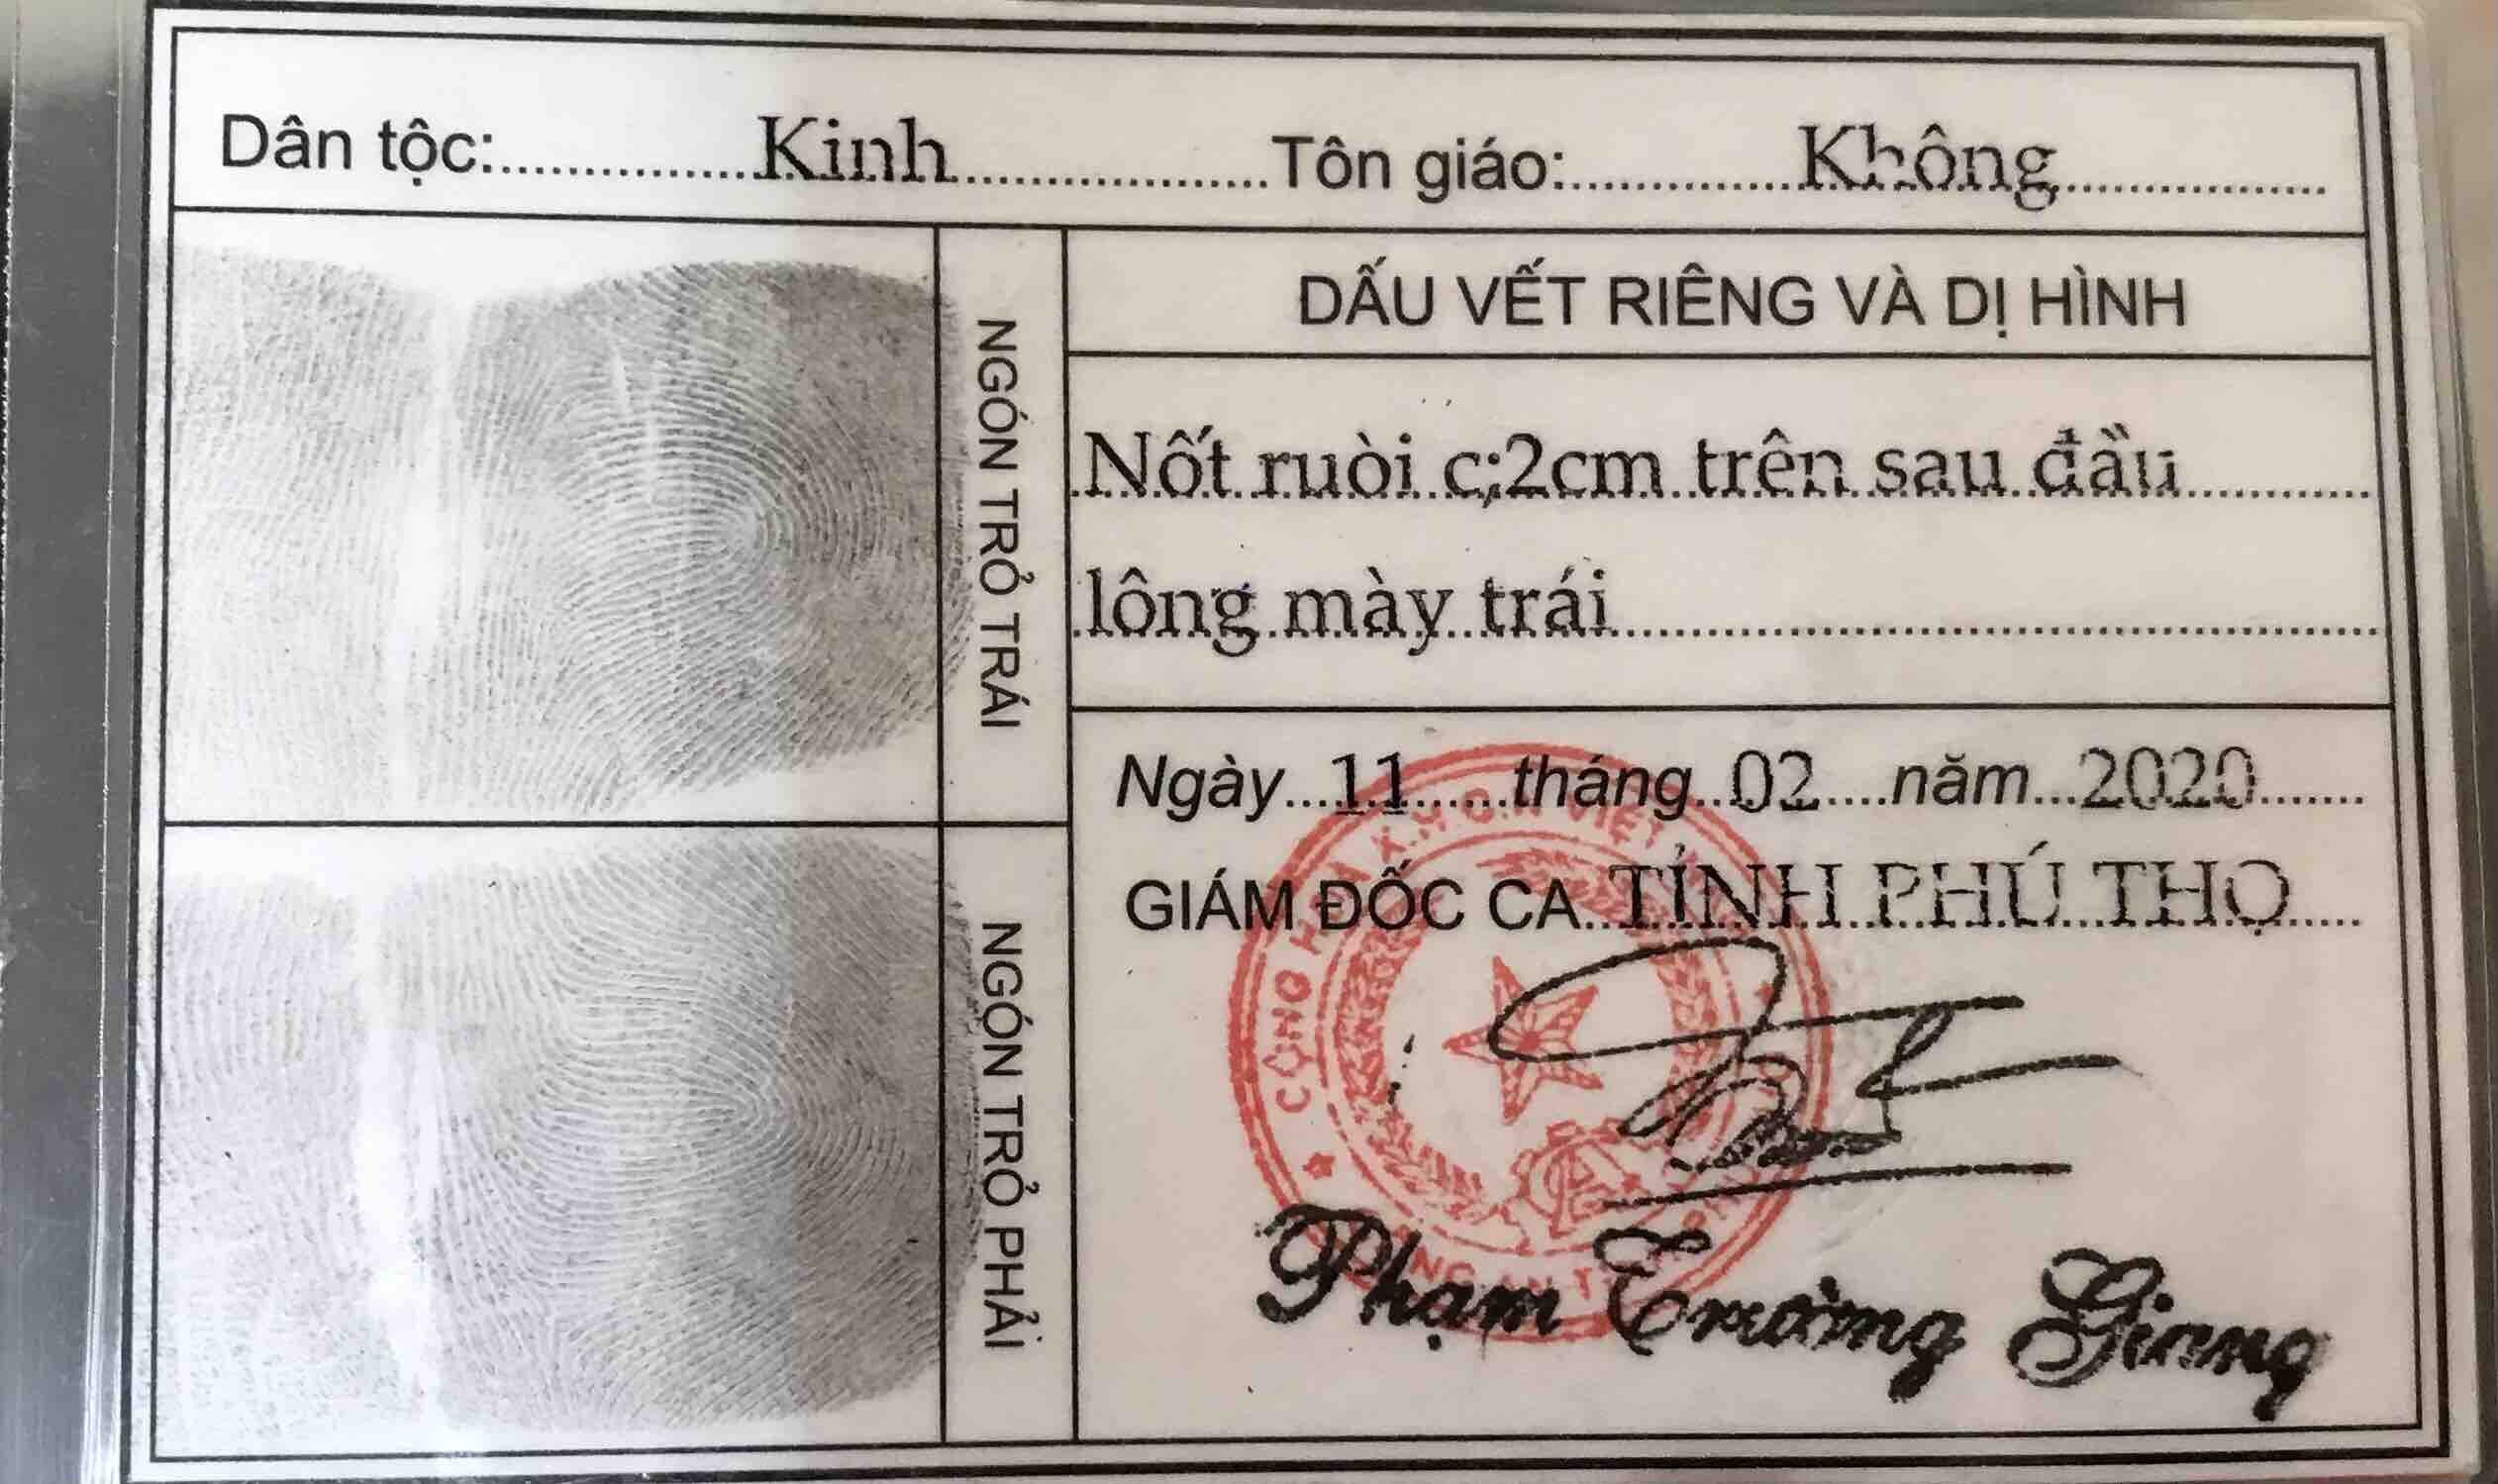 Dân tộc: Kinh Tôn giáo: Không
NGÓN TRỎ TRÁI
DẤU VẾT RIÊNG VÀ DỊ HÌNH
Nốt ruồi c;2cm trên sau đầu
lông mày trái
Ngày 11 tháng 02 năm 2020
GIÁM ĐỐC CA TỈNH PHÚ THỌ
CỘNG HÒA X.H.C.N VIỆT
CÔNG AN
Phạm Trường Giang
NGÓN TRỎ PHẢI